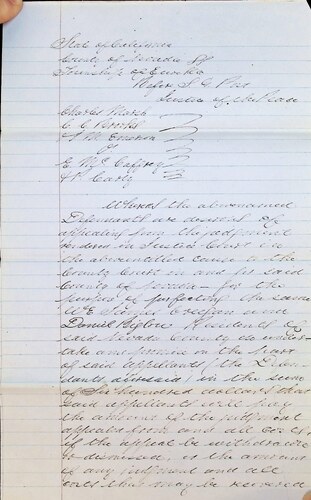 State of California
County of Nevada SS
Township of Eureka
Before S. C.
Justice of the Peace
Charles Marsh
C C Brooks
S M
vs
E McCaffrey
H Carty
Whereas the above named
Defendants are desirous of
appealing from the judgment
in Justice Court in
the above entitled cause to the
County Court in and for said
County of for the
purpose of perfecting the same
We and
Daniel Residents of
said Nevada County do under-
take and promise on the part
of said appellants (the Defen-
dants aforesaid) in the sum
of Six hundred dollars that
said appellants will pay
the amount of the judgment
appealed from and all costs
if the appeal be withdrawn
or dismissed, or the amount
of any judgment and all
costs that may be recovered